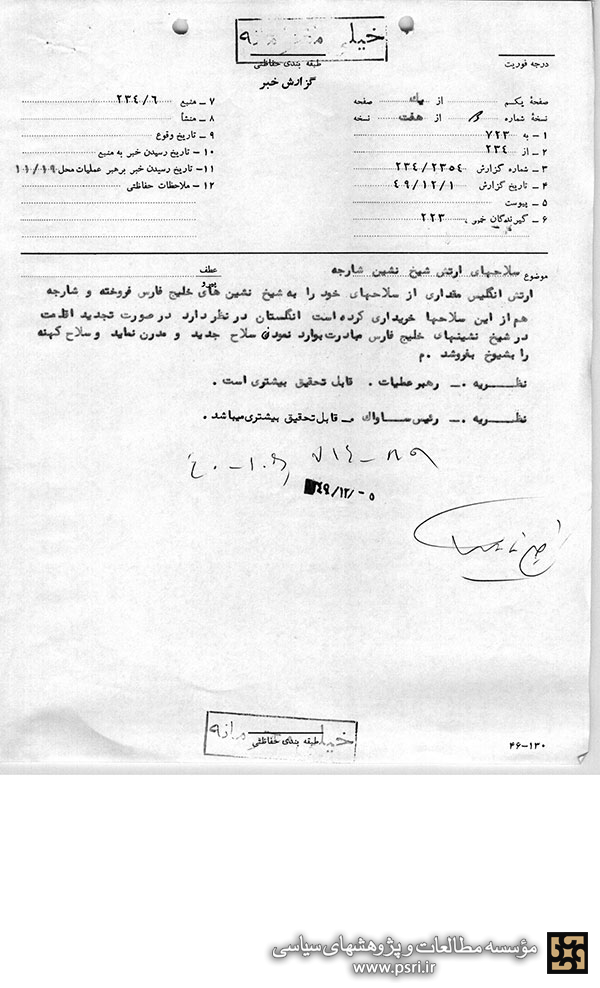 خیلی محرمانه
طبقه بندی حفاظتی
درجه فوریت
گزارش خبر
صفحهٔ یکم از یک صفحه
نسخهٔ شماره از هفت نسخه
۱ – به ۷۲۳
۲ – از ۲۳۴
۳ – شماره گزارش ۲۳۴/۲۳۵۴
۴ – تاریخ گزارش ۴۹/۱۲/۱
۵ – پیوست
۶ – گیرندگان خبر ۲۲۳
۷ – منبع ۲۳۴/۶
۸ – منشأ
۹ – تاریخ وقوع
۱۰ – تاریخ رسیدن خبر به منبع
۱۱ – تاریخ رسیدن خبر برهبر عملیات محل ۱۱/۱۹
۱۲ – ملاحظات حفاظتی
موضوع سلاحهای ارتش شیخ نشین شارجه
عطف
پیرو
ارتش انگلیس مقداری از سلاحهای خود را به شیخ نشین های خلیج فارس فروخته و شارجه
هم از این سلاحها خریداری کرده است انگلستان در نظر دارد در صورت تجدید اقامت
در شیخ نشینهای خلیج فارس مبادرت بوارد نمودن سلاح جدید و مدرن نماید و سلاح کهنه
را بشیوخ بفروشد . م
نظــریه .ــ رهبر عملیات . قابل تحقیق بیشتری است .
نظــریه .ــ رئیس ســاواک ــ قابل تحقیق بیشتری میباشد .
۴۹/۱۲/۰۵
خیلی محرمانه
طبقه بندی حفاظتی
۴۶-۱۳۰
مؤسسه مطالعات و پژوهشهای سیاسی
www.psri.ir